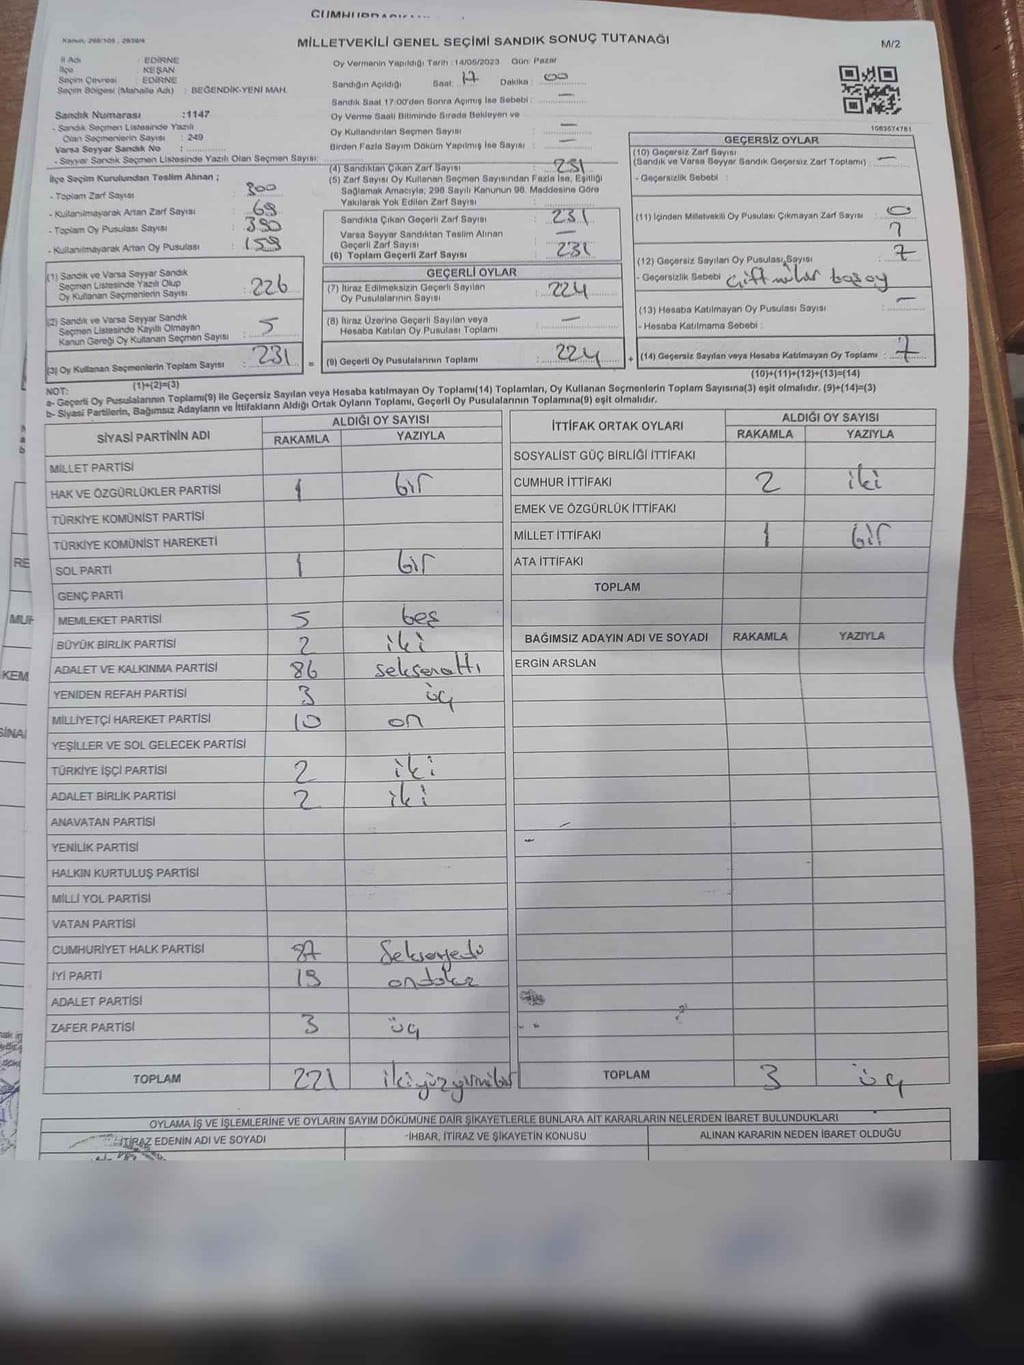 MİLLETVEKİLİ GENEL SEÇİMİ SANDIK SONUÇ TUTANAĞI
M/2
İl Adı : EDİRNE
İlçe : KEŞAN
Seçim Çevresi : EDİRNE
Seçim Bölgesi (Mahalle Adı) : BEĞENDİK-YENİ MAH.
Sandık Numarası :1147
- Sandık Seçmen Listesinde Yazılı
Olan Seçmenlerin Sayısı : 249
Varsa Seyyar Sandık No :
- Seyyar Sandık Seçmen Listesinde Yazılı Olan Seçmen Sayısı:
Oy Vermenin Yapıldığı Tarih :14/05/2023 Gün: Pazar
Sandığın Açıldığı Saat: 17 Dakika : 00
Sandık Saat 17:00'den Sonra Açımış İse Sebebi : —
Oy Verme Saati Bitiminde Sırada Bekleyen ve
Oy Kullandırılan Seçmen Sayısı : —
Birden Fazla Sayım Döküm Yapılmış İse Sayısı : —
1083574781
İlçe Seçim Kurulundan Teslim Alınan ;
- Toplam Zarf Sayısı : 300
- Kullanılmayarak Artan Zarf Sayısı : 69
- Toplam Oy Pusulası Sayısı : 390
- Kullanılmayarak Artan Oy Pusulası : 159
(1) Sandık ve Varsa Seyyar Sandık
Seçmen Listesinde Yazılı Olup
Oy Kullanan Seçmenlerin Sayısı : 226
(2) Sandık ve Varsa Seyyar Sandık
Seçmen Listesinde Kayıtlı Olmayan
Kanun Gereği Oy Kullanan Seçmen Sayısı : 5
(3) Oy Kullanan Seçmenlerin Toplam Sayısı : 231
(1)+(2)=(3)
(4) Sandıktan Çıkan Zarf Sayısı : 231
(5) Zarf Sayısı Oy Kullanan Seçmen Sayısından Fazla İse, Eşitliği
Sağlamak Amacıyla; 298 Sayılı Kanunun 98. Maddesine Göre
Yakılarak Yok Edilen Zarf Sayısı :
Sandıkta Çıkan Geçerli Zarf Sayısı : 231
Varsa Seyyar Sandıktan Teslim Alınan
Geçerli Zarf Sayısı : —
(6) Toplam Geçerli Zarf Sayısı : 231
GEÇERLİ OYLAR
(7) İtiraz Edilmeksizin Geçerli Sayılan
Oy Pusulalarının Sayısı : 224
(8) İtiraz Üzerine Geçerli Sayılan veya
Hesaba Katılan Oy Pusulası Toplamı : —
= (9) Geçerli Oy Pusulalarının Toplamı : 224
GEÇERSİZ OYLAR
(10) Geçersiz Zarf Sayısı
(Sandık ve Varsa Seyyar Sandık Geçersiz Zarf Toplamı) : —
- Geçersizlik Sebebi :
(11) İçinden Milletvekili Oy Pusulası Çıkmayan Zarf Sayısı : 0
(12) Geçersiz Sayılan Oy Pusulası Sayısı : 7
- Geçersizlik Sebebi : Çift mühür
(13) Hesaba Katılmayan Oy Pusulası Sayısı : —
- Hesaba Katılmama Sebebi :
+ (14) Geçersiz Sayılan veya Hesaba Katılmayan Oy Toplamı : 7
(10)+(11)+(12)+(13)=(14)
NOT:
a- Geçerli Oy Pusulalarının Toplamı(9) ile Geçersiz Sayılan veya Hesaba katılmayan Oy Toplamı(14) Toplamları, Oy Kullanan Seçmenlerin Toplam Sayısına(3) eşit olmalıdır. (9)+(14)=(3)
b- Siyasi Partilerin, Bağımsız Adayların ve İttifakların Aldığı Ortak Oyların Toplamı, Geçerli Oy Pusulalarının Toplamına(9) eşit olmalıdır.
SİYASİ PARTİNİN ADI ALDIĞI OY SAYISI
RAKAMLA YAZIYLA
MİLLET PARTİSİ
HAK VE ÖZGÜRLÜKLER PARTİSİ 1 bir
TÜRKİYE KOMÜNİST PARTİSİ
TÜRKİYE KOMÜNİST HAREKETİ
SOL PARTİ 1 bir
GENÇ PARTİ
MEMLEKET PARTİSİ 5 beş
BÜYÜK BİRLİK PARTİSİ 2 iki
ADALET VE KALKINMA PARTİSİ 86 seksenaltı
YENİDEN REFAH PARTİSİ 3 üç
MİLLİYETÇİ HAREKET PARTİSİ 10 on
YEŞİLLER VE SOL GELECEK PARTİSİ
TÜRKİYE İŞÇİ PARTİSİ 2 iki
ADALET BİRLİK PARTİSİ 2 iki
ANAVATAN PARTİSİ
YENİLİK PARTİSİ
HALKIN KURTULUŞ PARTİSİ
MİLLİ YOL PARTİSİ
VATAN PARTİSİ
CUMHURİYET HALK PARTİSİ 87 Seksenyedi
İYİ PARTİ 19 ondokuz
ADALET PARTİSİ
ZAFER PARTİSİ 3 üç
TOPLAM 221 ikiyüzyirmibir
İTTİFAK ORTAK OYLARI ALDIĞI OY SAYISI
RAKAMLA YAZIYLA
SOSYALİST GÜÇ BİRLİĞİ İTTİFAKI
CUMHUR İTTİFAKI 2 iki
EMEK VE ÖZGÜRLÜK İTTİFAKI
MİLLET İTTİFAKI 1 bir
ATA İTTİFAKI
TOPLAM
BAĞIMSIZ ADAYIN ADI VE SOYADI RAKAMLA YAZIYLA
ERGİN ARSLAN
TOPLAM 3 üç
OYLAMA İŞ VE İŞLEMLERİNE VE OYLARIN SAYIM DÖKÜMÜNE DAİR ŞİKAYETLERLE BUNLARA AİT KARARLARIN NELERDEN İBARET BULUNDUKLARI
İTİRAZ EDENİN ADI VE SOYADI İHBAR, İTİRAZ VE ŞİKAYETİN KONUSU ALINAN KARARIN NEDEN İBARET OLDUĞU